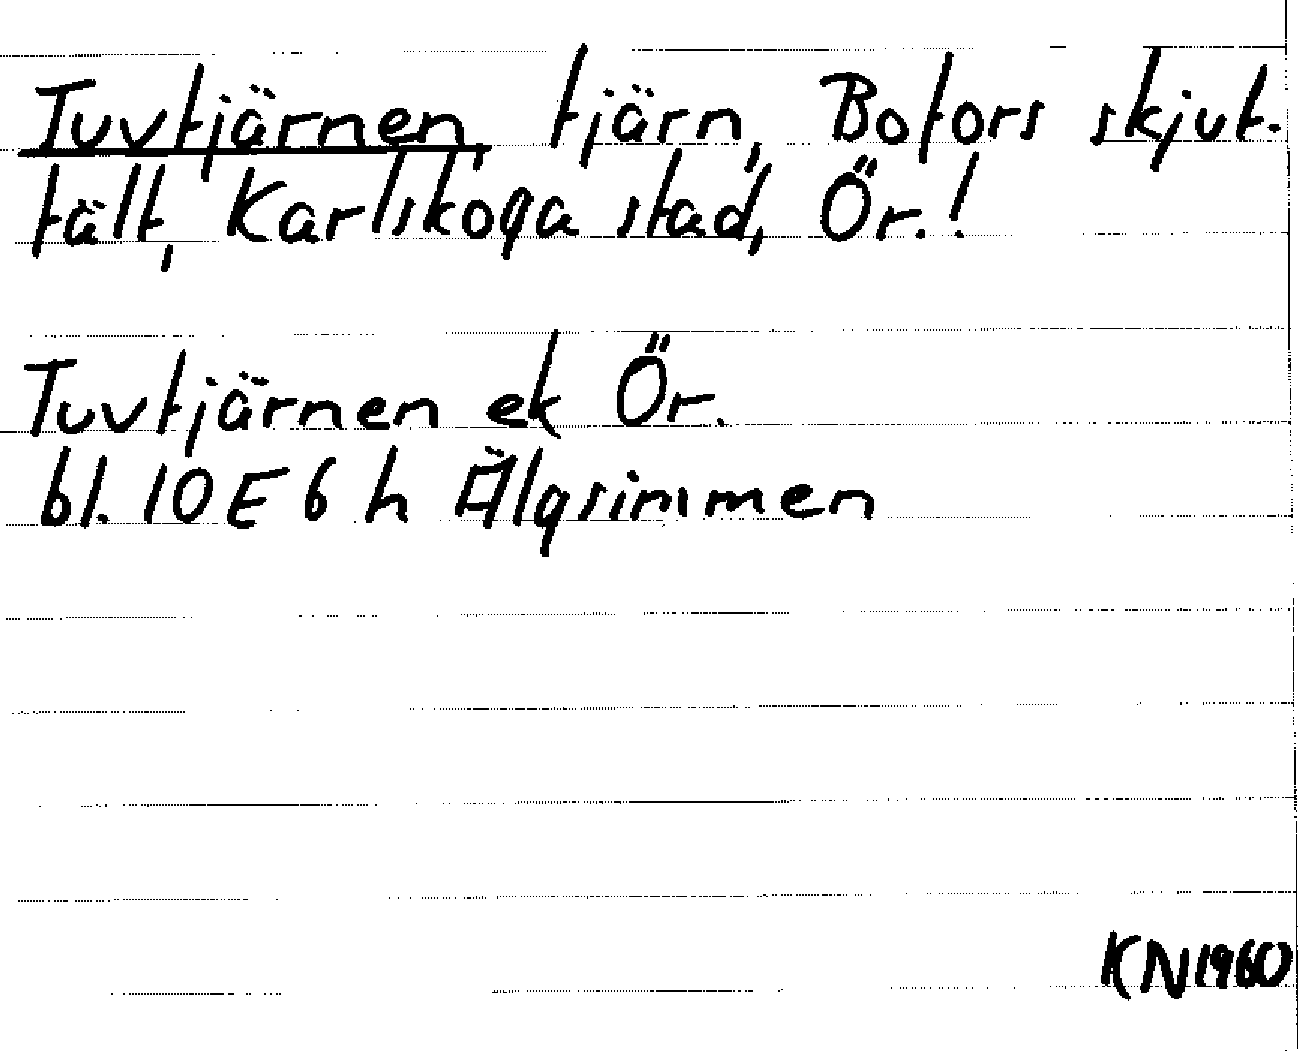 Tuvtjärnen, tjärn, Bofors skjut-
fält, Karlskoga stad, Ör.!
Tuvtjärnen ek Ör.
bl. 10E6h Älgsimmen
KN1960